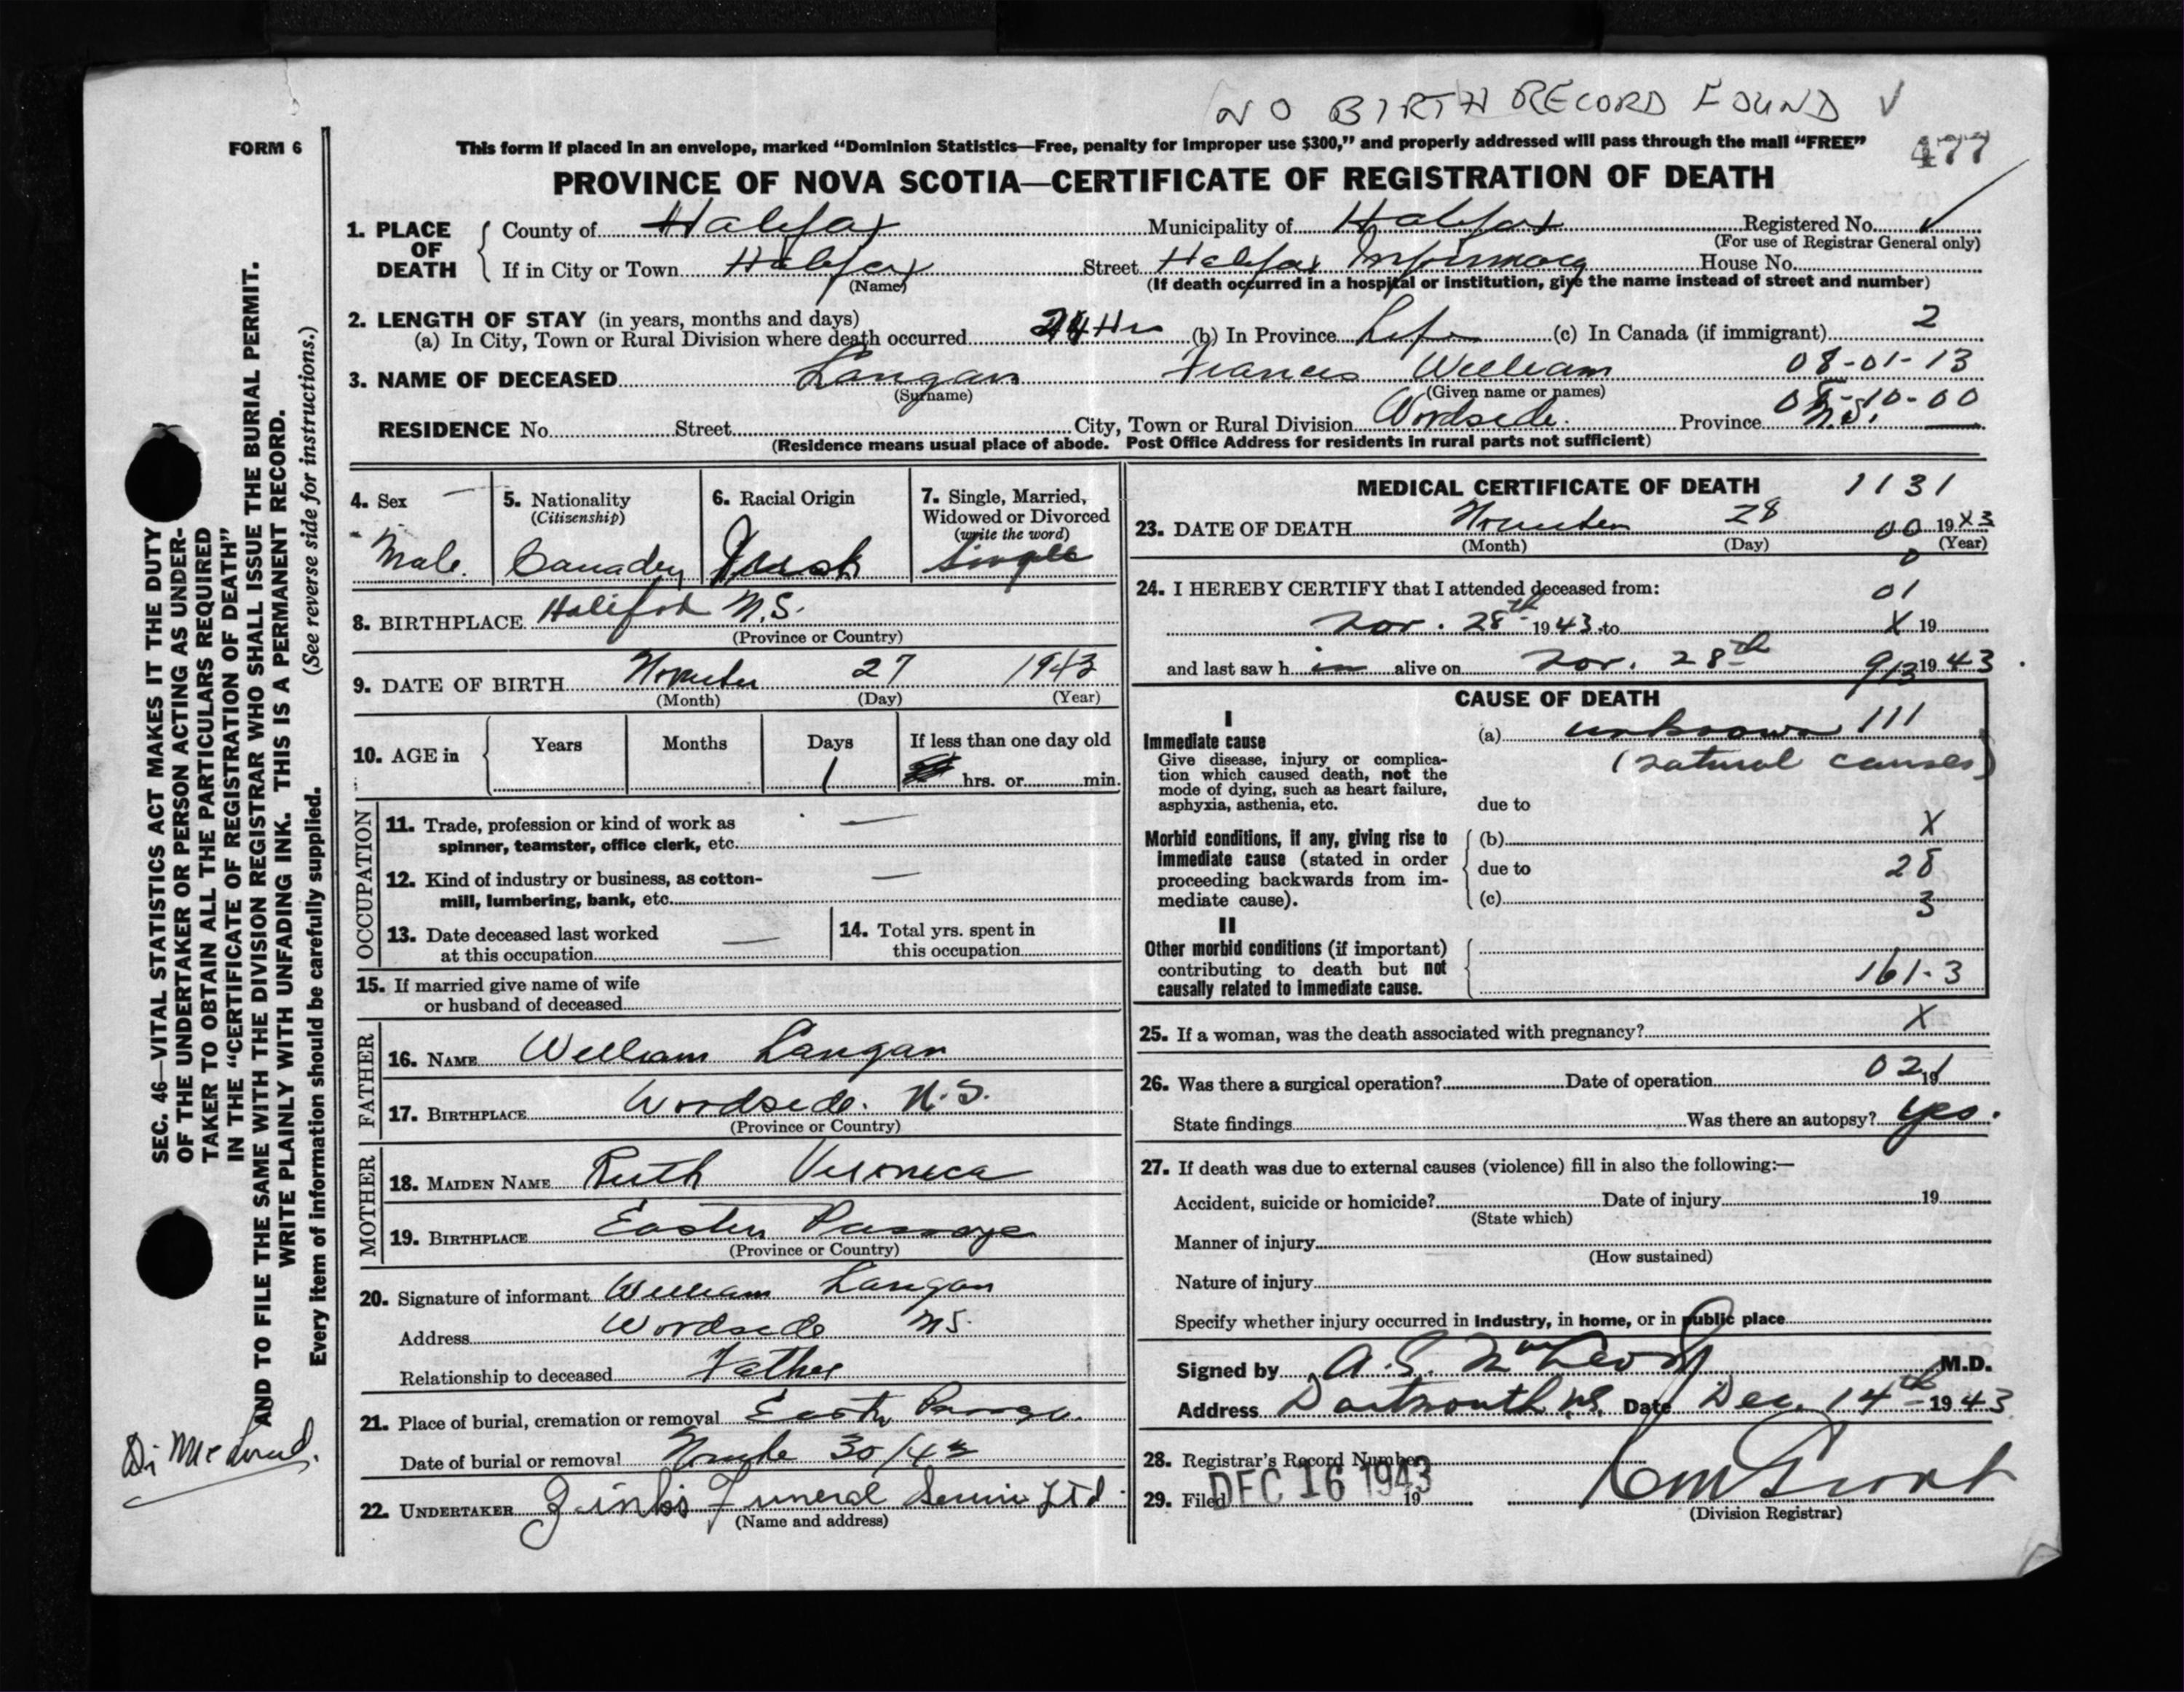 NO BIRTH RECORD FOUND ✓
FORM 6
This form if placed in an envelope, marked "Dominion Statistics—Free, penalty for improper use $300," and properly addressed will pass through the mail "FREE"
477
PROVINCE OF NOVA SCOTIA—CERTIFICATE OF REGISTRATION OF DEATH
1. PLACE OF DEATH County of Halifax Municipality of Halifax Registered No. ✓
(For use of Registrar General only)
If in City or Town Halifax Street Halifax Infirmary House No.
(Name) (If death occurred in a hospital or institution, give the name instead of street and number)
2. LENGTH OF STAY (in years, months and days)
(a) In City, Town or Rural Division where death occurred 24 Hrs (b) In Province Life (c) In Canada (if immigrant) 2
3. NAME OF DECEASED Langan Francis William 08-01-13
(Surname) (Given name or names)
08-10-00
RESIDENCE No. Street City, Town or Rural Division Woodside. Province N.S.
(Residence means usual place of abode. Post Office Address for residents in rural parts not sufficient)
4. Sex Male.
5. Nationality (Citizenship)
6. Racial Origin
7. Single, Married, Widowed or Divorced (write the word) Single
8. BIRTHPLACE Halifax N.S.
(Province or Country)
9. DATE OF BIRTH November 27 1943
(Month) (Day) (Year)
10. AGE in Years Months Days 1 If less than one day old hrs. or min.
OCCUPATION
11. Trade, profession or kind of work as spinner, teamster, office clerk, etc. —
12. Kind of industry or business, as cotton-mill, lumbering, bank, etc. —
13. Date deceased last worked at this occupation —
14. Total yrs. spent in this occupation
15. If married give name of wife or husband of deceased
FATHER
16. NAME William Langan
17. BIRTHPLACE Woodside. N.S.
(Province or Country)
MOTHER
18. MAIDEN NAME Ruth Veronica
19. BIRTHPLACE Eastern Passage
(Province or Country)
20. Signature of informant William Langan
Address Woodside NS.
Relationship to deceased Father
21. Place of burial, cremation or removal Eastern Passage
Date of burial or removal 30/43
22. UNDERTAKER Zink's Funeral Service Ltd.
(Name and address)
MEDICAL CERTIFICATE OF DEATH 1131
23. DATE OF DEATH November 28 00 19X3
(Month) (Day) (Year)
0
24. I HEREBY CERTIFY that I attended deceased from: 01
Nov. 28th 1943 to X 19
and last saw h im alive on Nov. 28th 913 1943.
CAUSE OF DEATH
I
Immediate cause
Give disease, injury or complication which caused death, not the mode of dying, such as heart failure, asphyxia, asthenia, etc.
(a) unknown 111
(natural causes)
due to
Morbid conditions, if any, giving rise to immediate cause (stated in order proceeding backwards from immediate cause).
(b) X
due to 28
(c) 3
II
Other morbid conditions (if important) contributing to death but not causally related to immediate cause.
161-3
25. If a woman, was the death associated with pregnancy? X
26. Was there a surgical operation? Date of operation 021 19
State findings Was there an autopsy? Yes.
27. If death was due to external causes (violence) fill in also the following:—
Accident, suicide or homicide? Date of injury 19
(State which)
Manner of injury
(How sustained)
Nature of injury
Specify whether injury occurred in industry, in home, or in public place
Signed by A. S. McLeod M.D.
Address Dartmouth N.S. Date Dec. 14th 1943
28. Registrar's Record Number
29. Filed DEC 16 1943 19
(Division Registrar)
SEC. 46—VITAL STATISTICS ACT MAKES IT THE DUTY
OF THE UNDERTAKER OR PERSON ACTING AS UNDER-
TAKER TO OBTAIN ALL THE PARTICULARS REQUIRED
IN THE "CERTIFICATE OF REGISTRATION OF DEATH"
AND TO FILE THE SAME WITH THE DIVISION REGISTRAR WHO SHALL ISSUE THE BURIAL PERMIT.
WRITE PLAINLY WITH UNFADING INK. THIS IS A PERMANENT RECORD.
Every item of information should be carefully supplied. (See reverse side for instructions.)